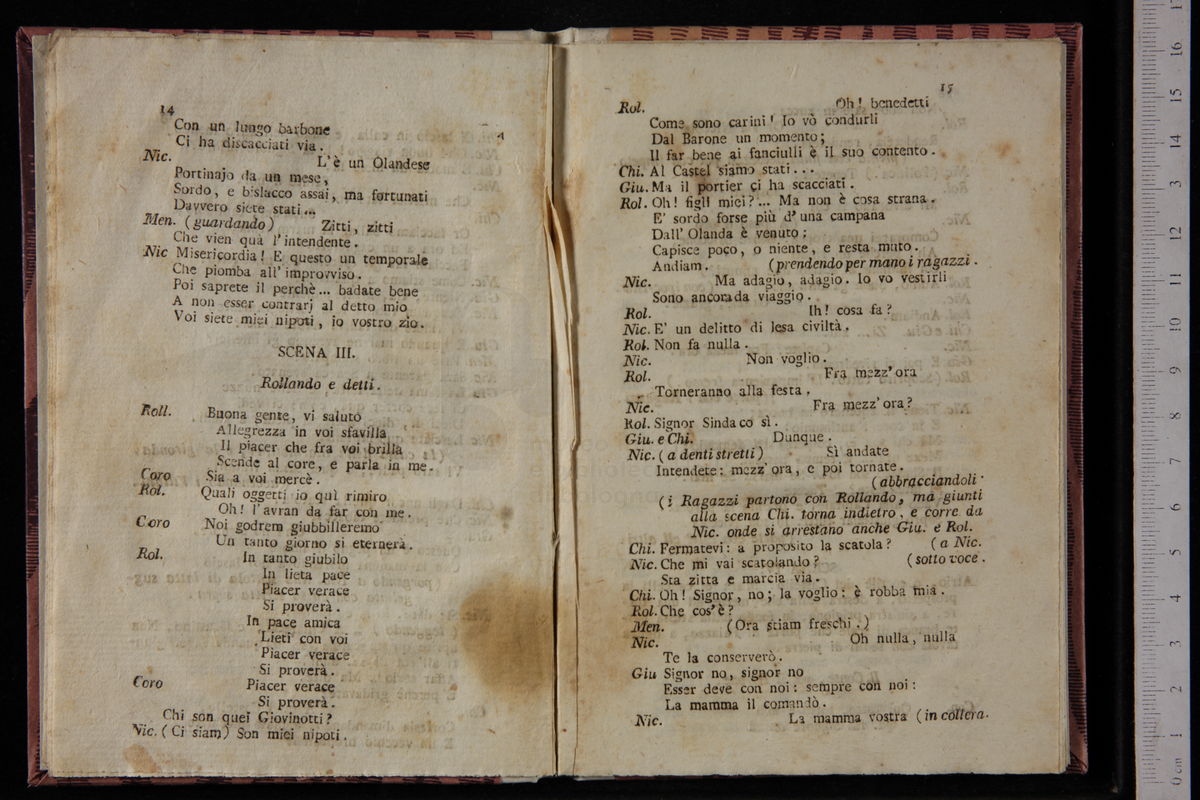 14
Con un lungo barbone
Ci ha discacciati via.
Nic. L'è un Olandese
Portinajo da un mese,
Sordo, e bislacco assai, ma fortunati
Davvero siete stati...
Men. (guardando) Zitti, zitti
Che vien quà l'intendente.
Nic Misericordia! E questo un temporale
Che piomba all'improvviso.
Poi saprete il perchè... badate bene
A non esser contrarj al detto mio
Voi siete miei nipoti, io vostro zio.
SCENA III.
Rollando e detti.
Roll. Buona gente, vi saluto
Allegrezza in voi sfavilla
Il piacer che fra voi brilla
Scende al core, e parla in me.
Coro Sia a voi mercè.
Rol. Quali oggetti io quì rimiro
Oh! l'avran da far con me.
Coro Noi godrem giubbilleremo
Un tanto giorno si eternerà.
Rol. In tanto giubilo
In lieta pace
Piacer verace
Si proverà.
In pace amica
Lieti con voi
Piacer verace
Si proverà.
Coro Piacer verace
Si proverà.
Chi son quei Giovinotti?
Nic. (Ci siam) Son miei nipoti.
15
Rol. Oh! benedetti
Come sono carini! Io vò condurli
Dal Barone un momento;
Il far bene ai fanciulli è il suo contento.
Chi. Al Castel siamo stati...
Giu. Ma il portier ci ha scacciati.
Rol. Oh! figli miei?... Ma non è cosa strana.
E' sordo forse più d'una campana
Dall'Olanda è venuto;
Capisce poco, o niente, e resta muto.
Andiam. (prendendo per mano i ragazzi.
Nic. Ma adagio, adagio. Io vo vestirli
Sono ancora da viaggio.
Rol. Ih! cosa fa?
Nic. E' un delitto di lesa civiltà.
Rol. Non fa nulla.
Nic. Non voglio.
Rol. Fra mezz'ora
Torneranno alla festa.
Nic. Fra mezz'ora?
Rol. Signor Sindaco sì.
Giu. e Chi. Dunque.
Nic. (a denti stretti) Sì andate
Intendete: mezz'ora, e poi tornate.
(abbracciandoli.
(i Ragazzi partono con Rollando, ma giunti
alla scena Chi. torna indietro, e corre da
Nic. onde si arrestano anche Giu. e Rol.
Chi. Fermatevi: a proposito la scatola? (a Nic.
Nic. Che mi vai scatolando? (sotto voce.
Sta zitta e marcia via.
Chi. Oh! Signor, no; la voglio: è robba mia.
Rol. Che cos'è?
Men. (Ora stiam freschi.)
Nic. Oh nulla, nulla
Te la conserverò.
Giu Signor no, signor no
Esser deve con noi: sempre con noi:
La mamma il comandò.
Nic. La mamma vostra (in collera.